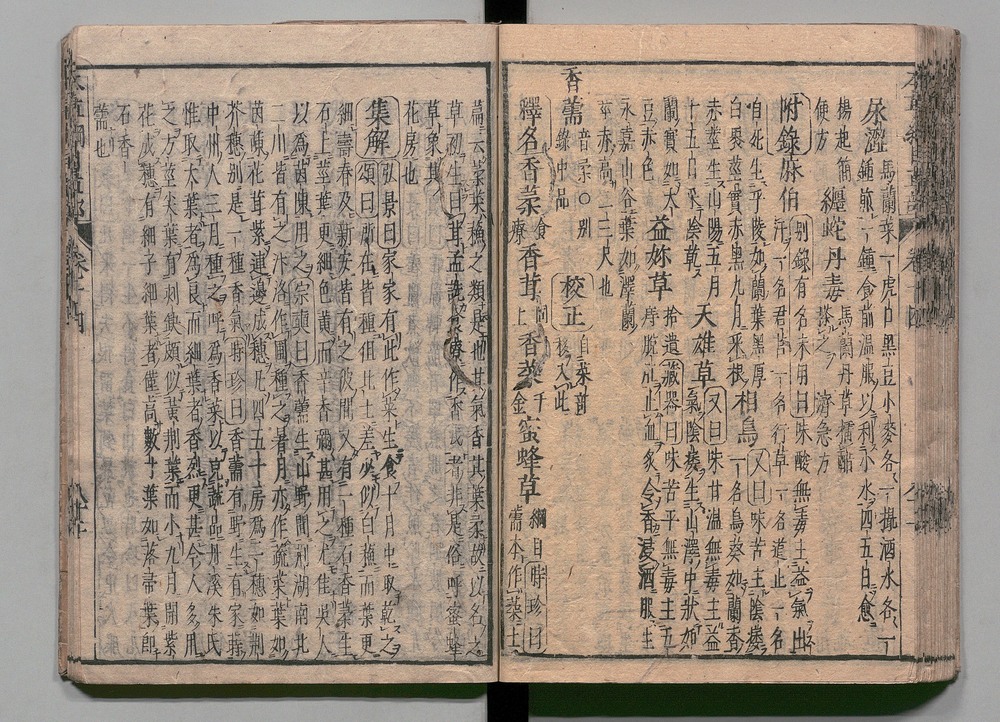 尿澀馬蘭來一虎口黑豆小麥各一撮酒水各一
鍾煎一鍾食前溫服以利小水四五日愈
楊起簡便方 纏蛇丹毒馬蘭丹草擂醋搽之 濟急方
附錄麻伯別錄有名未用曰味酸無毒主益氣出汗一名君莒一名衍草一名道止一名
自死生平陵如蘭葉黑厚白裏莖實赤黑九月采根 相烏又曰味苦主陰痿一名烏葵如蘭香
赤莖生山陽五月十五日采陰乾 天雄草又曰味甘溫無毒主益氣陰痿生山澤中狀如
蘭實如大豆赤色 益妳草拾遺藏器曰味苦平無毒主五痔脫肛止血炙令香浸酒服生
永嘉山谷葉如澤蘭莖赤高二三尺也
香薷音柔○別錄中品 校正自菜部移入此
釋名香菜食療香茸同上香菜千金蜜蜂草綱目時珍曰薷本作菜玉
篇云菜菜蘇之類是也其氣香其葉柔故以名之
草初生曰茸孟詵食療作香戎者非是俗呼蜜蜂
草象其花房也
集解弘景曰家家有此作菜生食十月中取乾之
頌曰所在皆種但北土差少似白蘇而葉更
細壽春及新安皆有之彼間又有一種石香菜生
石上莖葉更細色黃而辛香彌甚用之尤佳吳人
以為茵陳用之宗奭曰香薷生山野間荊湖南北
二川皆有之汴洛作圃種之暑月亦作蔬菜葉如
茵蔯花茸紫連邊成穗凡四五十房為一穗如荊
芥穗別是一種香氣時珍曰香薷有野生有家蒔
中州人三月種之呼為香菜以充蔬品丹溪朱氏
惟取大葉者為良而細葉者香烈更甚今人多用
之方莖尖葉有刺缺頗似黃荊葉而小九月開紫
花成穗有細子細葉者僅高數寸葉如落帚葉即
石香
薷也